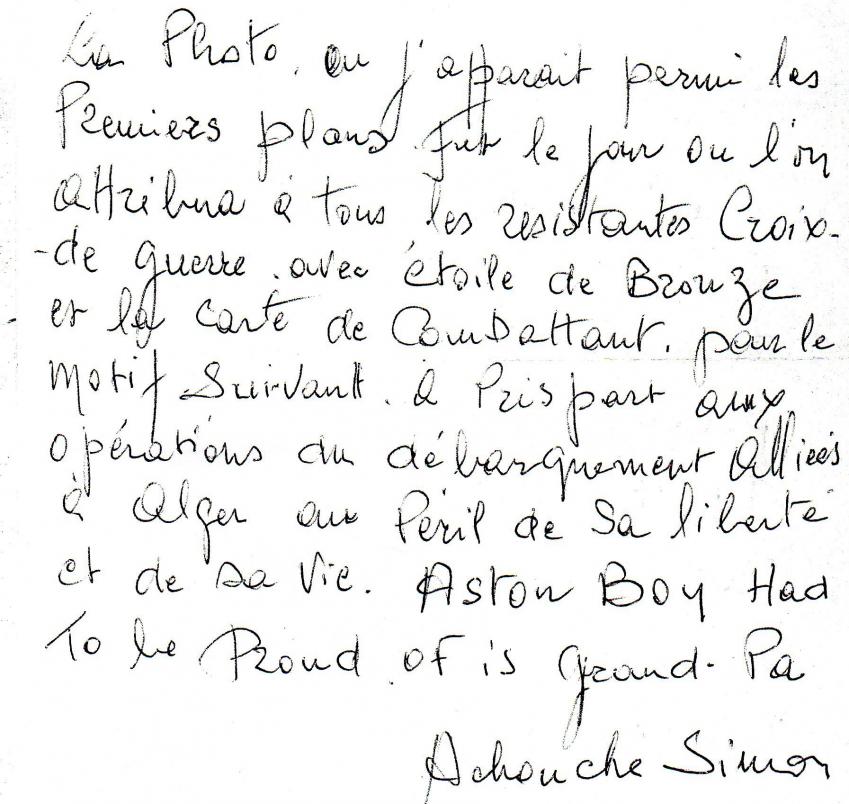 La Photo. ou j'apparait permi les
Premiers plans. Fut le jour ou l'on
attribua à tous les resistantes Croix-
-de guerre. avec étoile de Bronze
et la carte de Combattant. pour le
Motif Suivant. à Pris part aux
opérations du débarquement Alliées
à Alger au Péril de sa liberté
et de sa Vie. Aston Boy Had
To be Proud of is grand-Pa
Achouche Simon